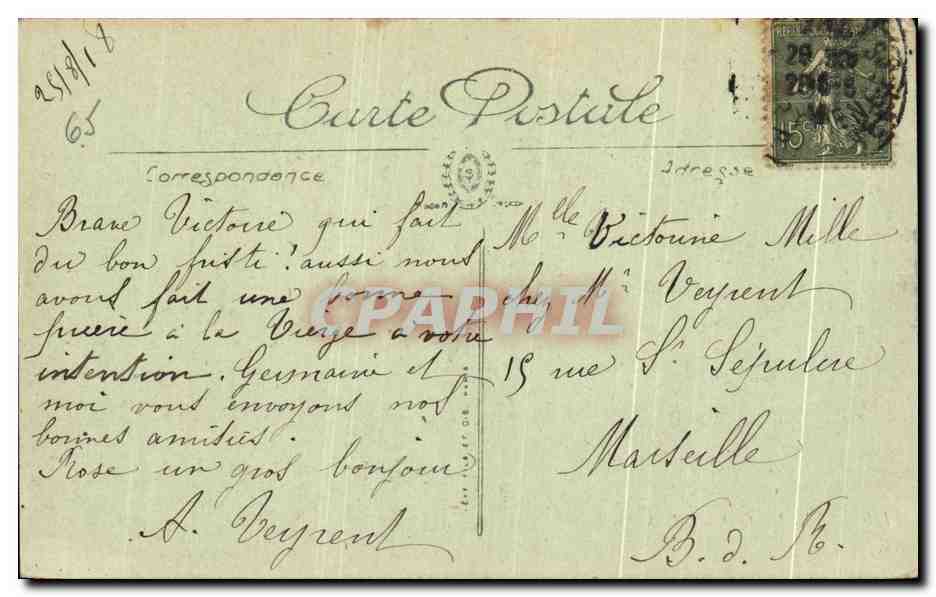 25/8/18
65
Carte Postale
Correspondance
Adresse
Brave Victoire qui fait
du bon fristi! aussi nous
avons fait une bonne
prière à la Vierge à votre
intention. Germaine et
moi vous envoyons nos
bonnes amitiés.
Rose un gros bonjour
A. Veyrent
Mlle Victorine Mille
chez Mr Veyrent
15 rue St Sépulcre
Marseille
B. d. R.
15c
CPAPHIL